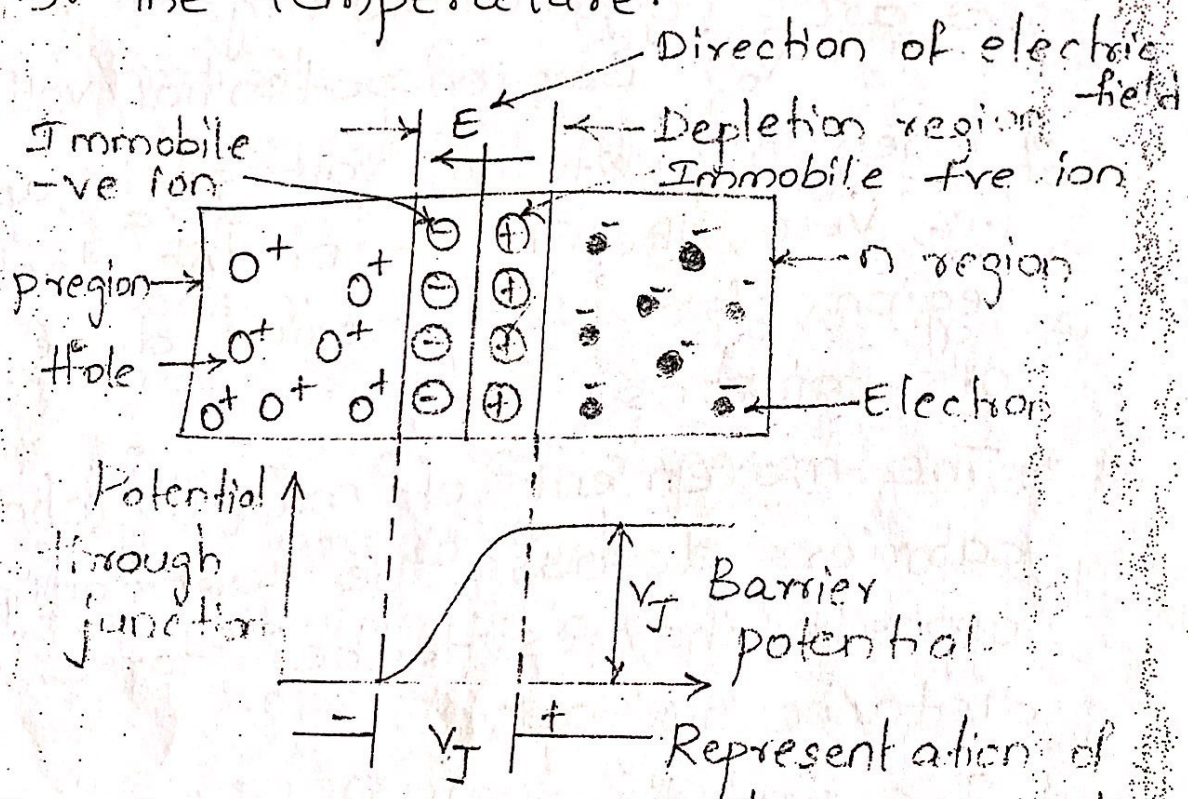 3. The Temperature.
Direction of electric
-field
E
Immobile
-ve ion
Depletion region
Immobile +ve ion
p region
n region
Hole
Electron
Potential
through
junction
VJ
Barrier
potential
- VJ +
Representation of